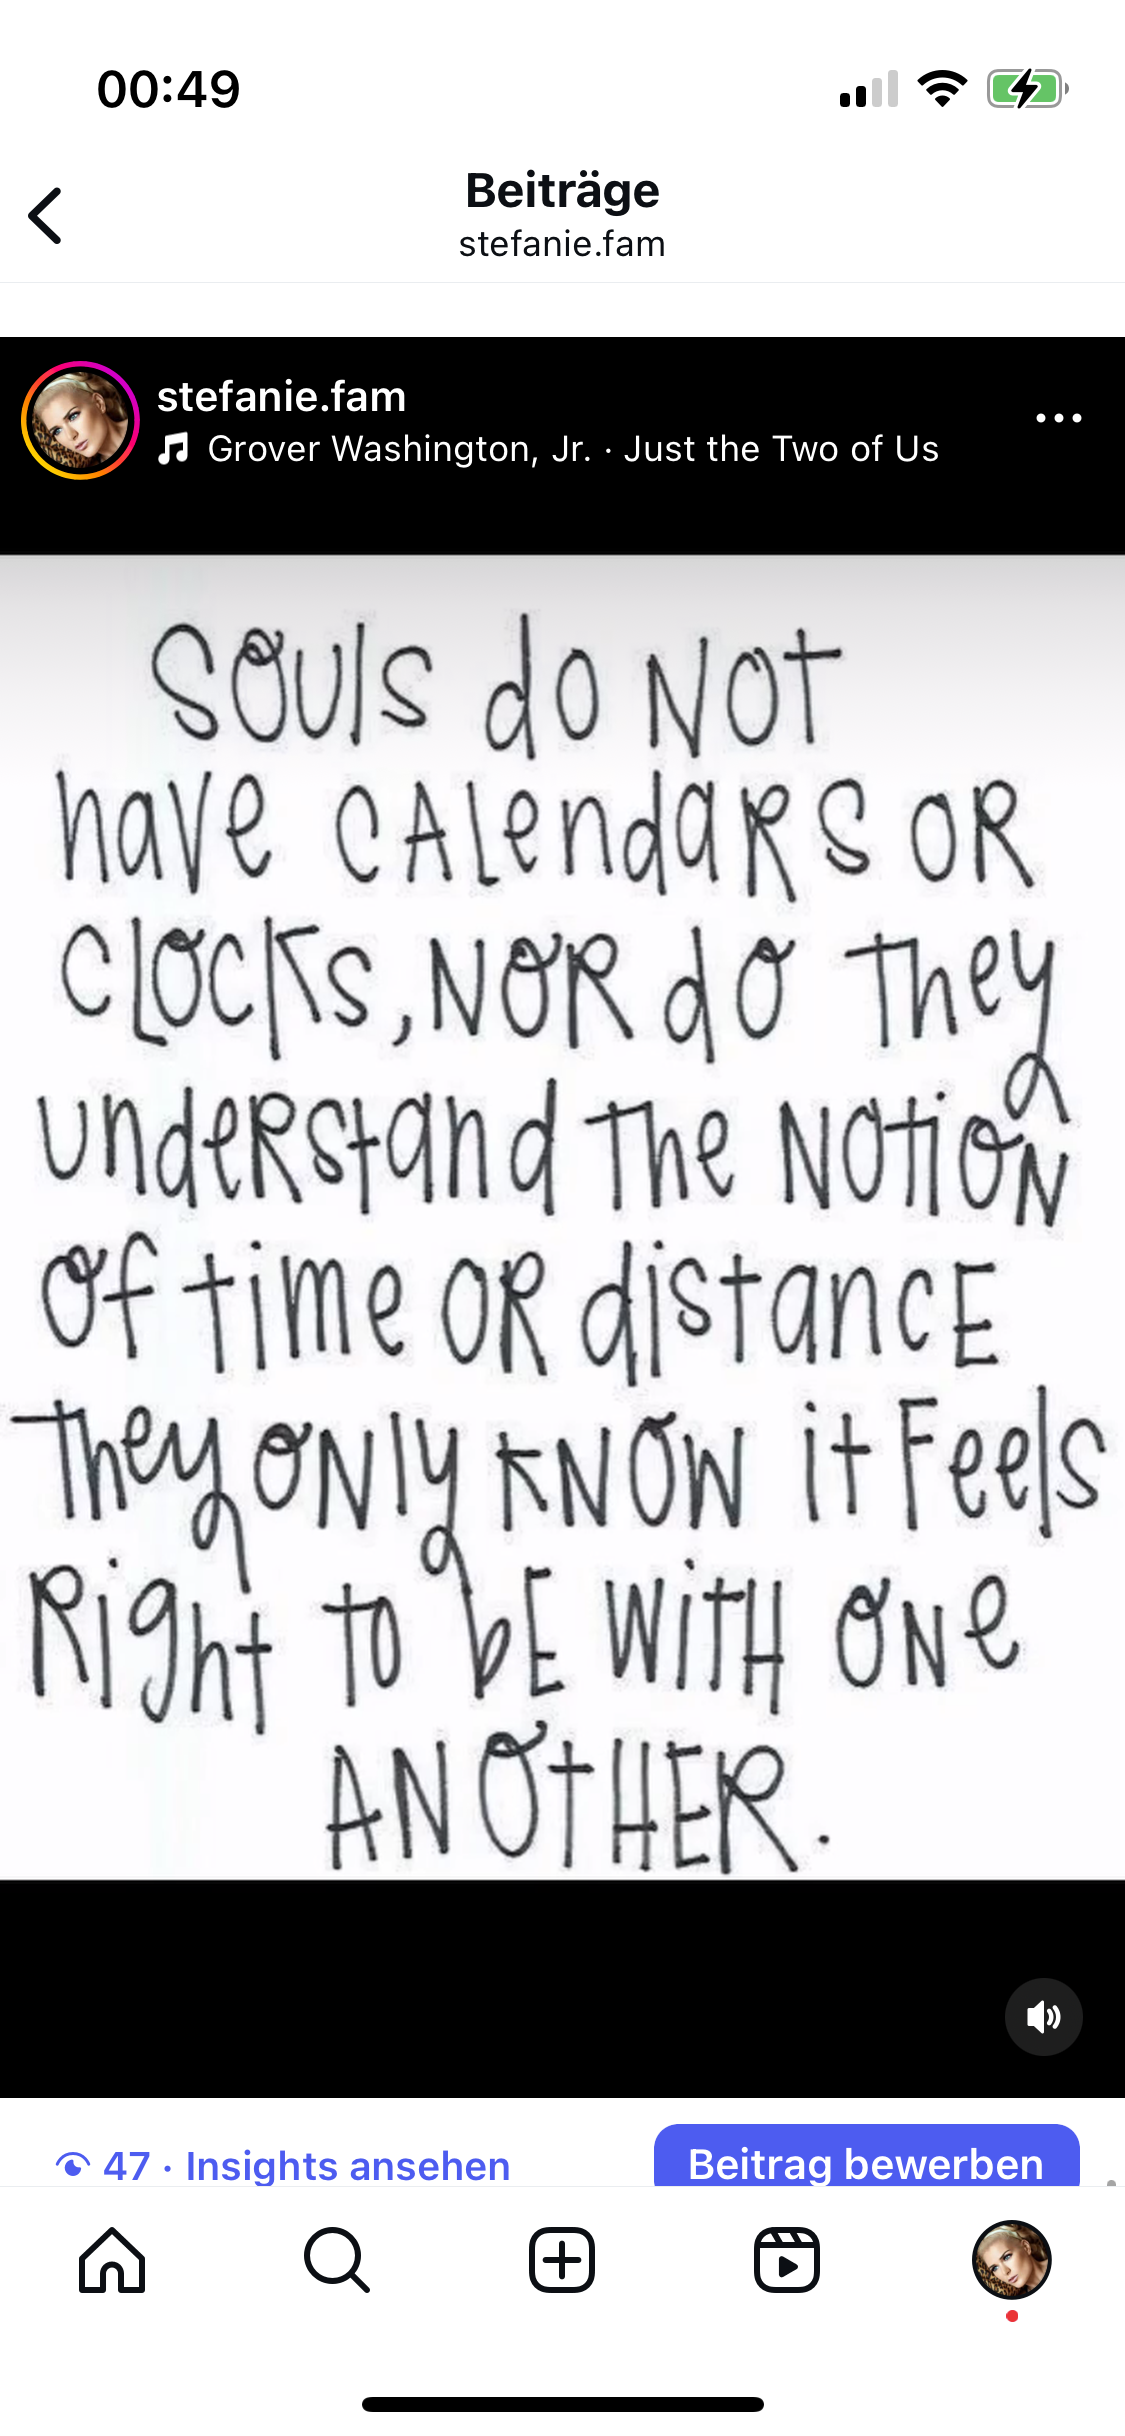 00:49
Beiträge
stefanie.fam
stefanie.fam
Grover Washington, Jr. · Just the Two of Us
Souls do NOt
have CALendARS OR
CLOCKS, NOR do They
undeRStand The NOtiON
Of time OR distancE
They ONly KNOW it Feels
Right TO bE WiTH ONe
ANOtHER.
47 · Insights ansehen
Beitrag bewerben